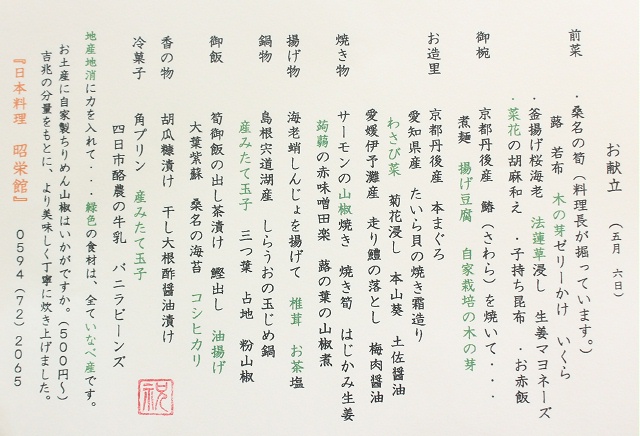 お献立 (五月 六日)
前菜 ・桑名の筍(料理長が掘っています。)
蕗 若布 木の芽ゼリーかけ いくら
・釜揚げ桜海老 法蓮草浸し 生姜マヨネーズ
・菜花の胡麻和え ・子持ち昆布 ・お赤飯
御椀 京都丹後産 鰆(さわら)を焼いて・・・
煮麺 揚げ豆腐 自家栽培の木の芽
お造里 京都丹後産 本まぐろ
愛知県産 たいら貝の焼き霜造り
愛媛伊予灘産 走り鱧の落とし 梅肉醤油
わさび菜 菊花浸し 本山葵 土佐醤油
焼き物 サーモンの山椒焼き 焼き筍 はじかみ生姜
蒟蒻の赤味噌田楽 蕗の葉の山椒煮
揚げ物 海老蛸しんじょを揚げて 椎茸 お茶塩
鍋物 島根宍道湖産 しらうおの玉じめ鍋
産みたて玉子 三つ葉 占地 粉山椒
御飯 筍御飯の出し茶漬け 鰹出し 油揚げ
大葉紫蘇 桑名の海苔 コシヒカリ
香の物 胡瓜糠漬け 干し大根酢醤油漬け
冷菓子 角プリン 産みたて玉子
四日市酪農の牛乳 バニラビーンズ
地産地消に力を入れて・・・緑色の食材は、全ていなべ産です。
お土産に自家製ちりめん山椒はいかがですか。(500円~)
吉兆の分量をもとに、より美味しく丁寧に炊き上げました。
『日本料理 昭栄館』 0594(72)2065
祝